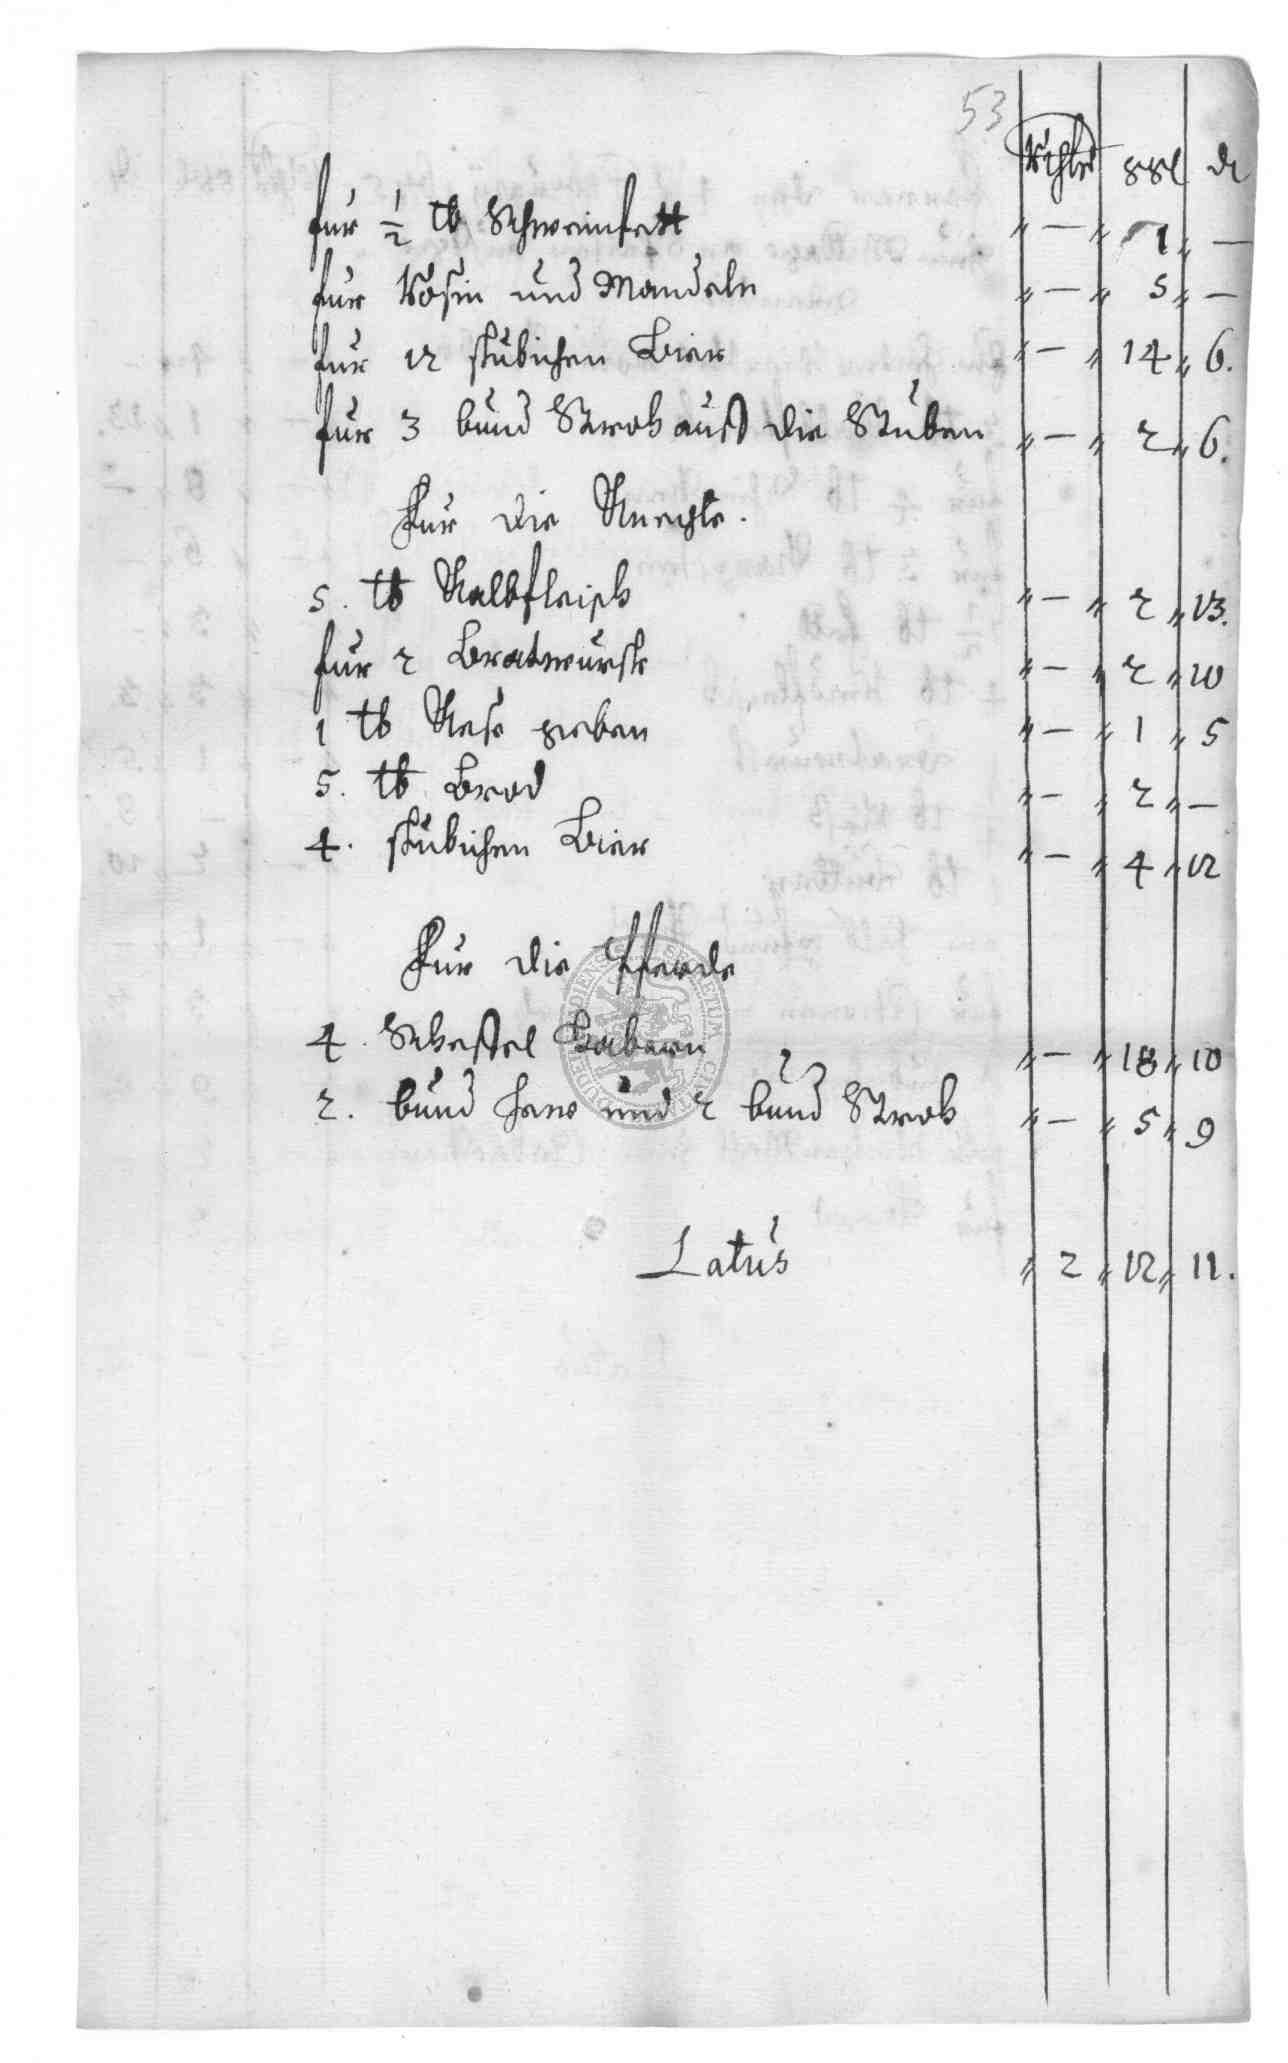 53
Rthlr ßßl d
für 1/2 tb Schweinfett " — " 1 " —
für Rosin und Mandeln " — " 5 " —
für 12 stübichen Bier " — " 14 " 6.
für 3 bund Stroh auß die Stuben " — " 2 " 6.
Für die Knechte.
5. tb Kalbfleisch " — " 2 " 13.
für 2 Bratwurst " — " 2 " 10
1 tb Kese geben " — " 1 " 5
5. tb Brod " — " 2 " —
4. stübichen Bier " — " 4 " 12
Für die Pferde
4. Scheffel Habern " — " 18 " 10
2. bund Haw und 2 bund Stroh " — " 5 " 9
Latus " 2 " 12 " 11.